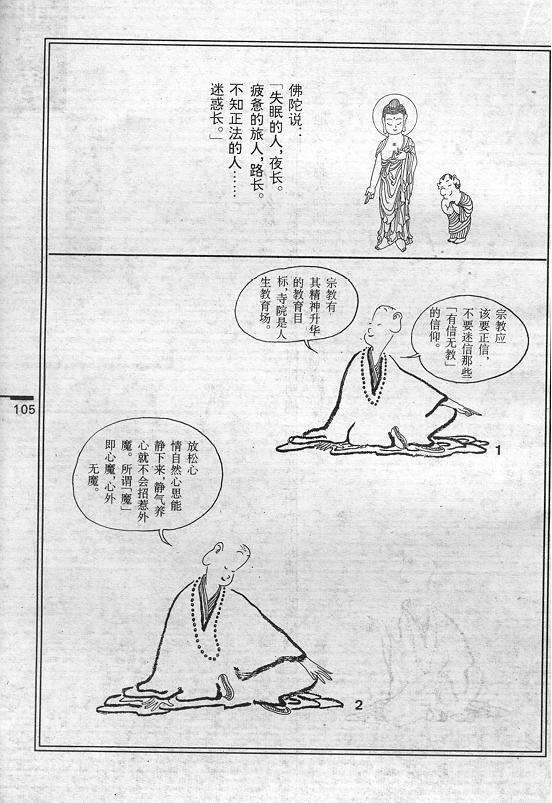 佛陀说：
「失眠的人，夜长。
疲惫的旅人，路长。
不知正法的人……
迷惑长。」
宗教应
该要正信，
不要迷信那些
「有信无教」
的信仰。
宗教有，
其精神升华
的教育目
标，寺院是人
生教育场。
1
105
放松心
情自然心思能
静下来，静气养
心就不会招惹外
魔。所谓「魔」
即心魔，心外
无魔。
2